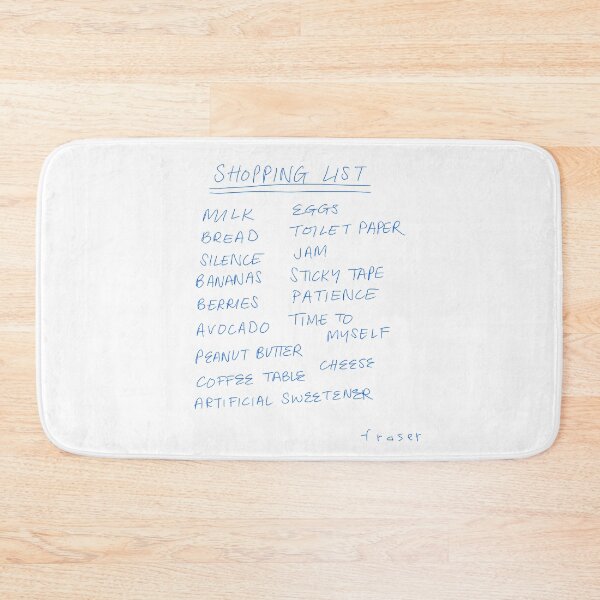 SHOPPING LIST
MILK EGGS
BREAD TOILET PAPER
SILENCE JAM
BANANAS STICKY TAPE
BERRIES PATIENCE
AVOCADO TIME TO
MYSELF
PEANUT BUTTER
COFFEE TABLE CHEESE
ARTIFICIAL SWEETENER
fraser